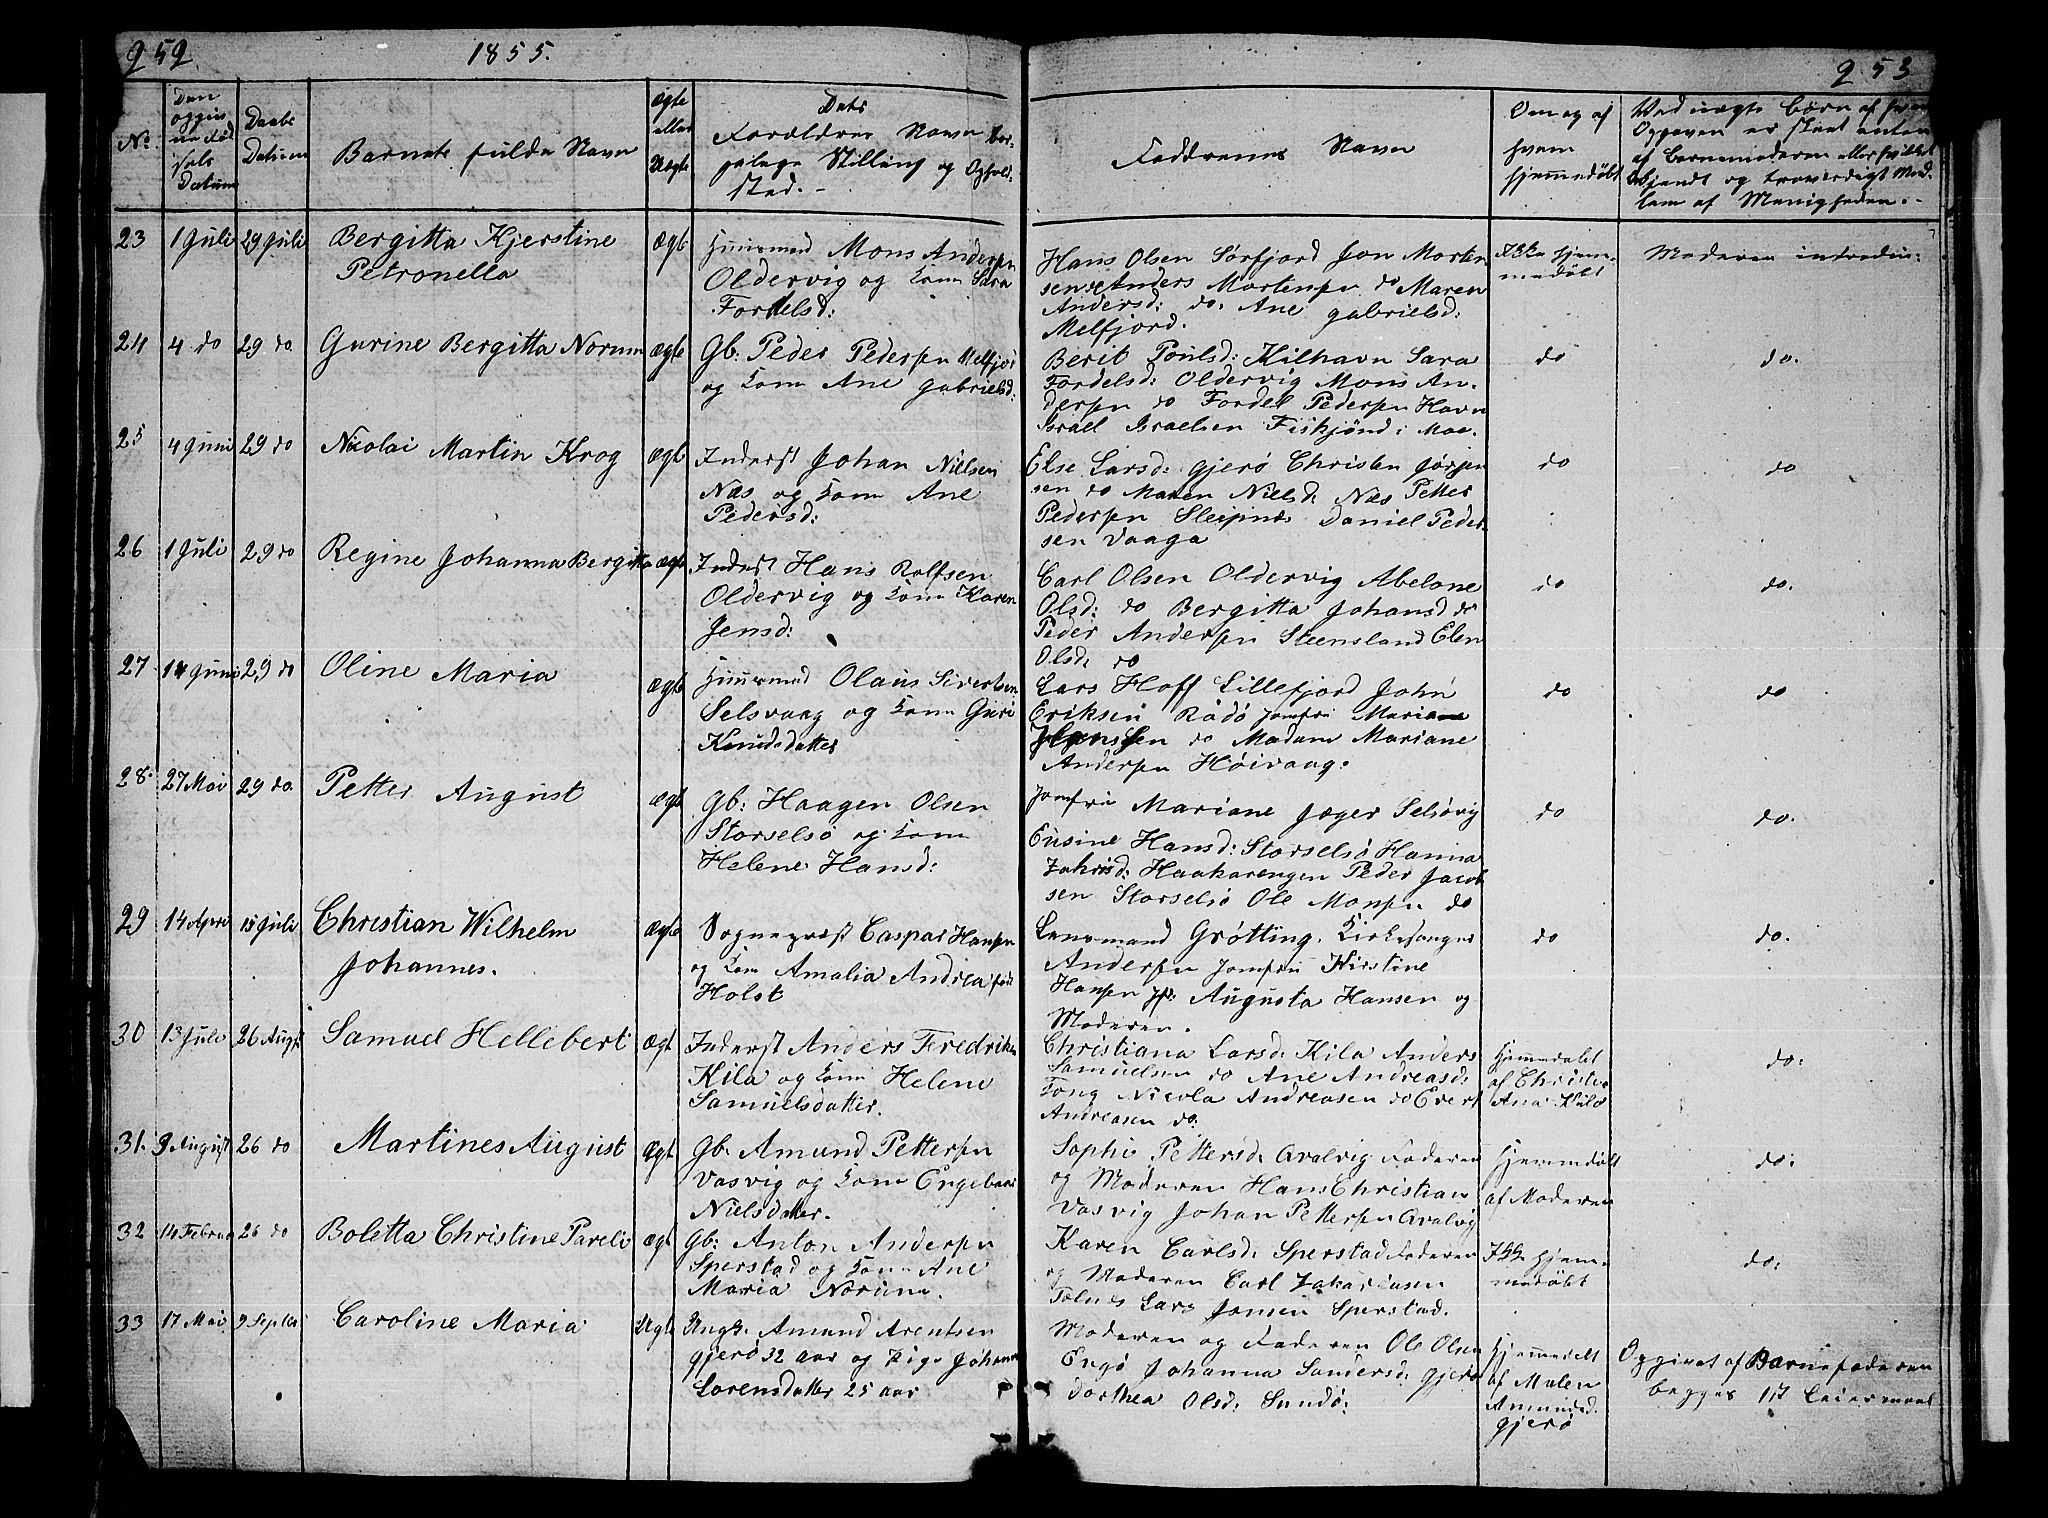 252
1855.
253
No.
Den opgivne Fødsels Datum
Daabs Datum
Barnets fulde Navn
Ægte eller Uægte
Dets Forældres Navn Borgelige Stilling og Opholdsted.-
Faddrenes Navn
Om og af hvem hjemmedøbt
Ved uægte Børn af hvem Opgaven er skeet enten af Barnemoderen eller hvilket bekjendt og troværdigt Medlem af Menigheden.-
23 1 Juli 29 Juli Bergitta Kjerstine Ægt Huusmand Mons Andersen Hans Olsen Sørfjord Jon Morten- Ikke hjem- Moderen introduc:
Petronella Oldervig og Kone Sara sen Anders Mortensen do Maren medøbt
Fordelsd: Andersd: do. Ane Gabrielsd:
Melfjord.
24 4 do 29 do Gurine Bergitta Norum Ægte Gb: Peder Pedersen Melfjor Berit Poulsd: Kilhavn Sara do do.
og Kone Ane Gabrielsd: Fordelsd: Oldervig Mons An-
dersen do Fordel Pedersen Havn
Israel Israelsen Fiskjønd i Moe.
25 4 Juni 29 do Nicolai Martin Krog Ægt Inderst Johan Nielsen Else Larsd: Gjerø Christen Jørgen do do
Næs og Kone Ane sen do Maren Nielsd: Næs Petter
Pedersd: Pedersen Sleipnes Daniel Peder-
sen Vaaga
26 1 Juli 29 do Regine Johanna Bergitta Ægt Inderst Hans Rolfsen Carl Olsen Oldervig Abelone do do.
Oldervig og Kone Karen Olsd: do Bergitta Johansd do
Jensd: Peder Andersen Steensland Elen
Olsd: do
27 14 Juni 29 do Oline Maria Ægte Huusmand Olaus Sivertsen Lars Hoff Lillefjord John do do
Selsvaag og Kone Guri Eriksen Rødø Jomfru Mariane
Knudsdatter Hansen do Madam Mariane
Andersen Høivaag.
28. 27 Mai 29 do. Petter August Ægt Gb: Haagen Olsen Jomfru Mariane Jæger Selsøvig do do.
Storselsø og Kone Eusine Hansd: Storselsø Hanna
Helene Hansd: Zakrisd: Haakarengen Peder Jacob
sen Storselsø Ole Monsen do
29 14 April 15 Juli Christian Wilhelm Ægte Sognepræst Caspar Hansen Lensmand Grøtting. Kirkesanger do do.
Johannes. og Kone Amalia Andrea fød Andersen Jomfru Kirstine
Holst Hansen Jfr: Augusta Hansen og
Moderen.
30 13 Juli 26 Augst Samuel Hellebert Ægt Inderst Anders Fredriksen Christiana Larsd: Kila Anders Hjemmedøbt do:
Kila og Kone Helene Samuelsen do Ane Andreasd: af Christi-
Samuelsdatter. Tong Nicola Andreasen do Evert Ana Kila
Andreasen do.
31. 9 August 26 do Martines August Ægt Gb: Amund Pettersen Sophi Pettersd: Qvalvig Faderen Hjemmedøbt do:
Vasvig og Kone Engebaar og Moderen Hans Christian af Moderen
Nielsdatter. Vasvig Johan Pettersen Qvalvig
32 14 Februa 26 do Boletta Christine Pareli Ægt Gb: Anton Andersen Karen Carlsd: Sperstad Faderen Ikke hjem- do:
Sperstad og Kone Ane og Moderen Carl Zakariasen medøbt
Maria Norum. Tolnes Lars Jonsen Sperstad.
33 17 Mai 9 Septbr Caroline Maria Uægte Ungk: Amund Arentsen Moderen og Faderen Ole Olsen Hjemmedøbt Opgivet af Barnefaderen
Gjerø 32 aar og Pige Johanna Engø Johanna Sandersd: Gjerø af Malen begges 1st Leiermaal
Lorensdatter 25 aar Dorthea Olsd: Sundø: Amundsd.
Gjerø